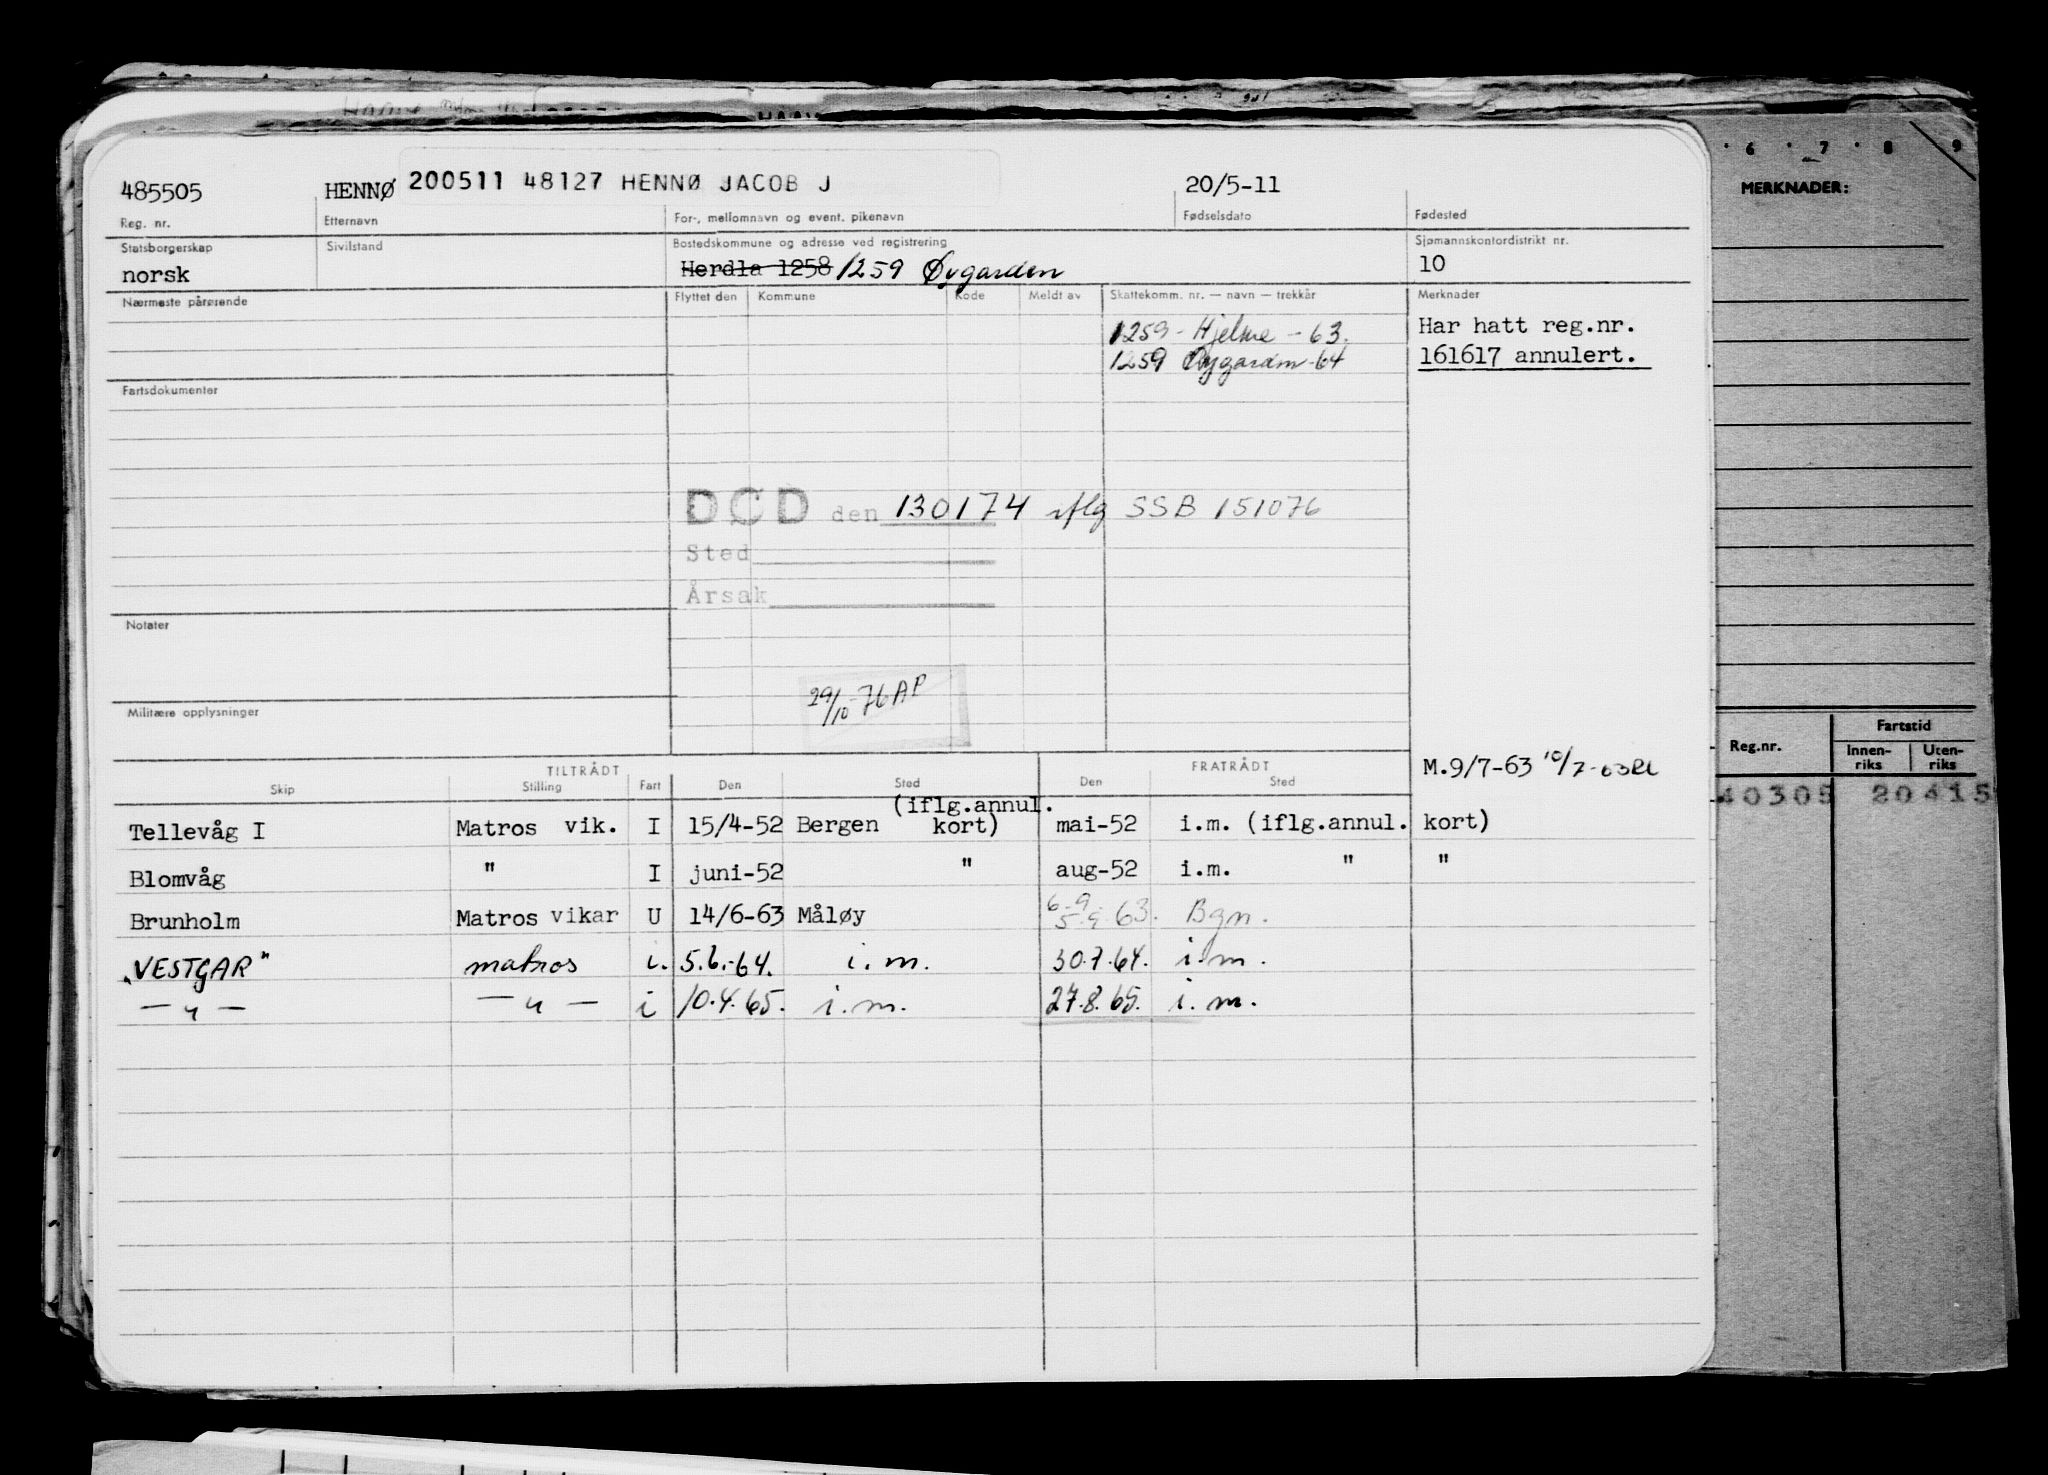 6 7 8 9
MERKNADER:
485505 HENNØ 200511 48127 HENNØ JACOB J 20/5-11
Reg. nr. Etternavn For-, mellomnavn og event. pikenavn Fødselsdato Fødested
Statsborgerskap Sivilstand Bostedskommune og adresse ved registrering Sjømannskontordistrikt nr.
norsk Herdla 1258 1259 Øygarden 10
Nærmeste pårørende Flyttet den Kommune Kode Meldt av Skattekomm. nr. — navn — trekkår Merknader
1259 - Hjelme - 63. Har hatt reg.nr.
1259 Øygarden-64 161617 annulert.
Fartsdokumenter
DØD den 130174 iflg SSB 151076
Sted
Årsak
Notater
29/10-76 AP
Militære opplysninger
Reg.nr. Fartstid
Innen-riks Uten-riks
40305 20415
TILTRÅDT FRATRÅDT M.9/7-63 10/7-63
Skip Stilling Fart Den Sted Den Sted
(iflg.annul.
Tellevåg I Matros vik. I 15/4-52 Bergen kort) mai-52 i.m. (iflg.annul. kort)
Blomvåg " I juni-52 " aug-52 i.m. " "
Brunholm Matros vikar U 14/6-63 Måløy 6.9. 5.9.63. Bgn.
"VESTGAR" matros i. 5.6.-64. i.m. 30.7.64. i.m.
— " — — " — i 10.4.65. i.m. 27.8.65. i.m.